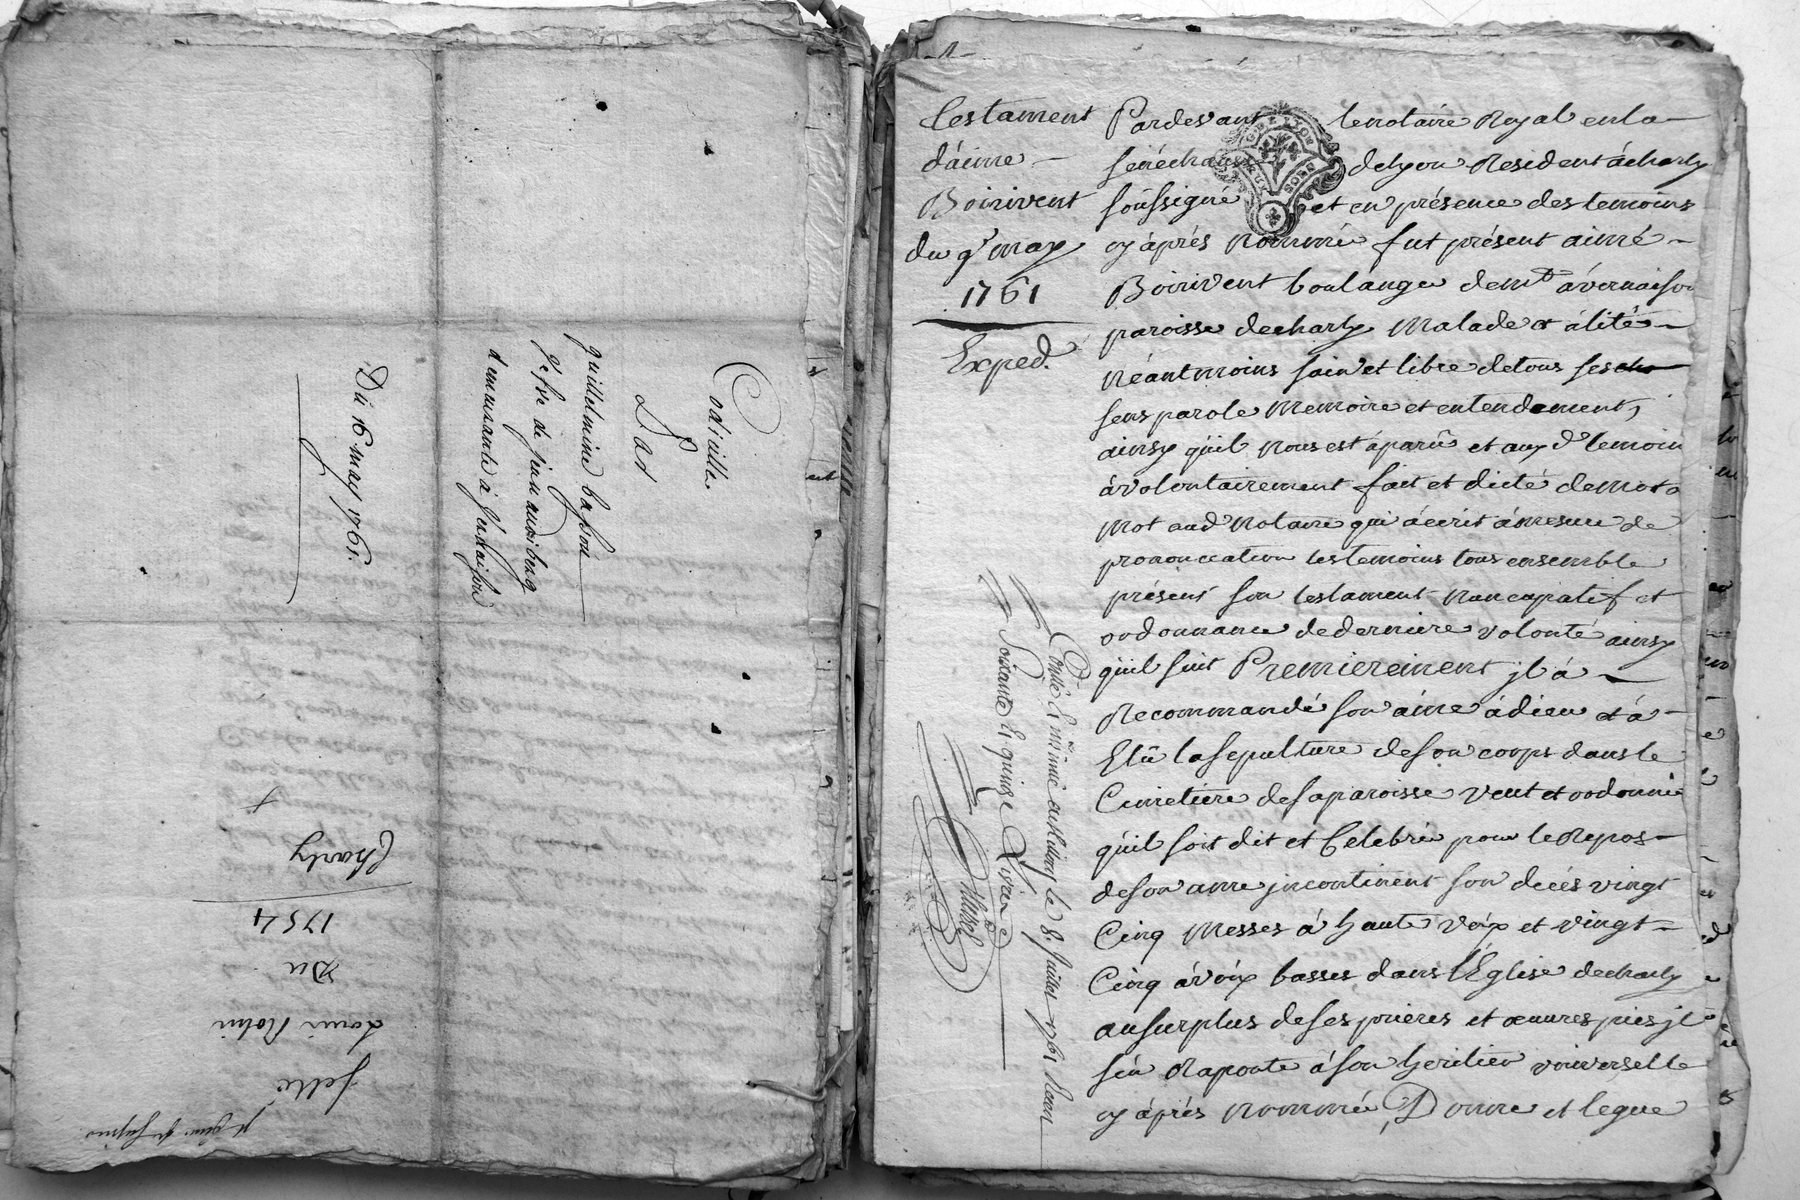 Codicille
Par
guillelmine
du 16 may 1761.
Charly
1754
Du
Louis
testament
d'aimé
Boirivent
du 9e may
1761
Exped.
Pardevant le notaire Royal en la
sénéchaussée de lyon Resident a charly
soussigné et en présence des temoins
cy áprés nommé fut présent aimé
Boirivent boulanger demt á vernaison
paroisse de charly Malade et álité
Néantmoins sain et libre de tous ses
sens parole Memoire et entendement,
ainsy quil nous est áparû et aux d temoin
á volontairement fait et dicté de mot a
mot aud Notaire qui á écrit á mesure de
prononciation les temoins tous ensemble
présent son testament Nuncupatif et
ordonnance de derniere volonté ainsy
quil suit Premierement jl á
Recommandé son áme á dieu et á
Elû la sepulture de son corps dans le
Cimetiere de sa paroisse veut et ordonne
quil soit dit et Celebré pour le Repos
de son ame jncontinent son décés vingt
Cinq Messes á haute voix et vingt
Cinq á voix basses dans l'Eglise de charly
au surplus de ses prieres et œuvres pies jl
s'en Raporte á son heritier universelle
cy áprés nommée, Donne et legue
Conllé Et insinué au le 8. Juillet 1761 Reçu
Soixante Et quinze Livres